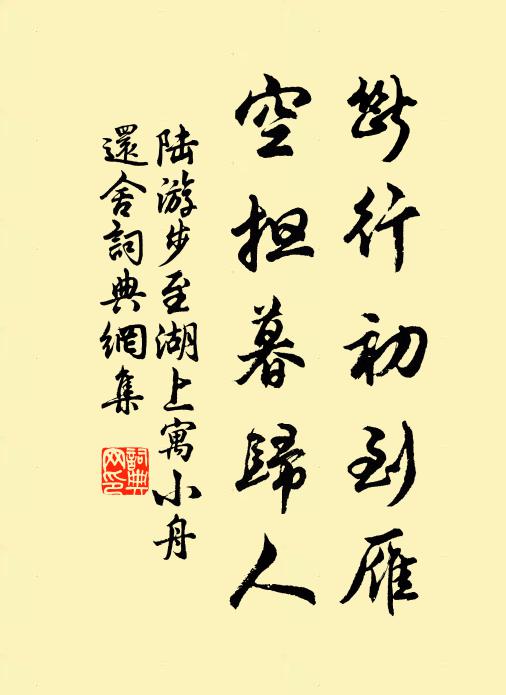 斷行初到雁
空担暮歸人
陆游步至湖上寓小舟
還舍詞典網集
詞典
网印